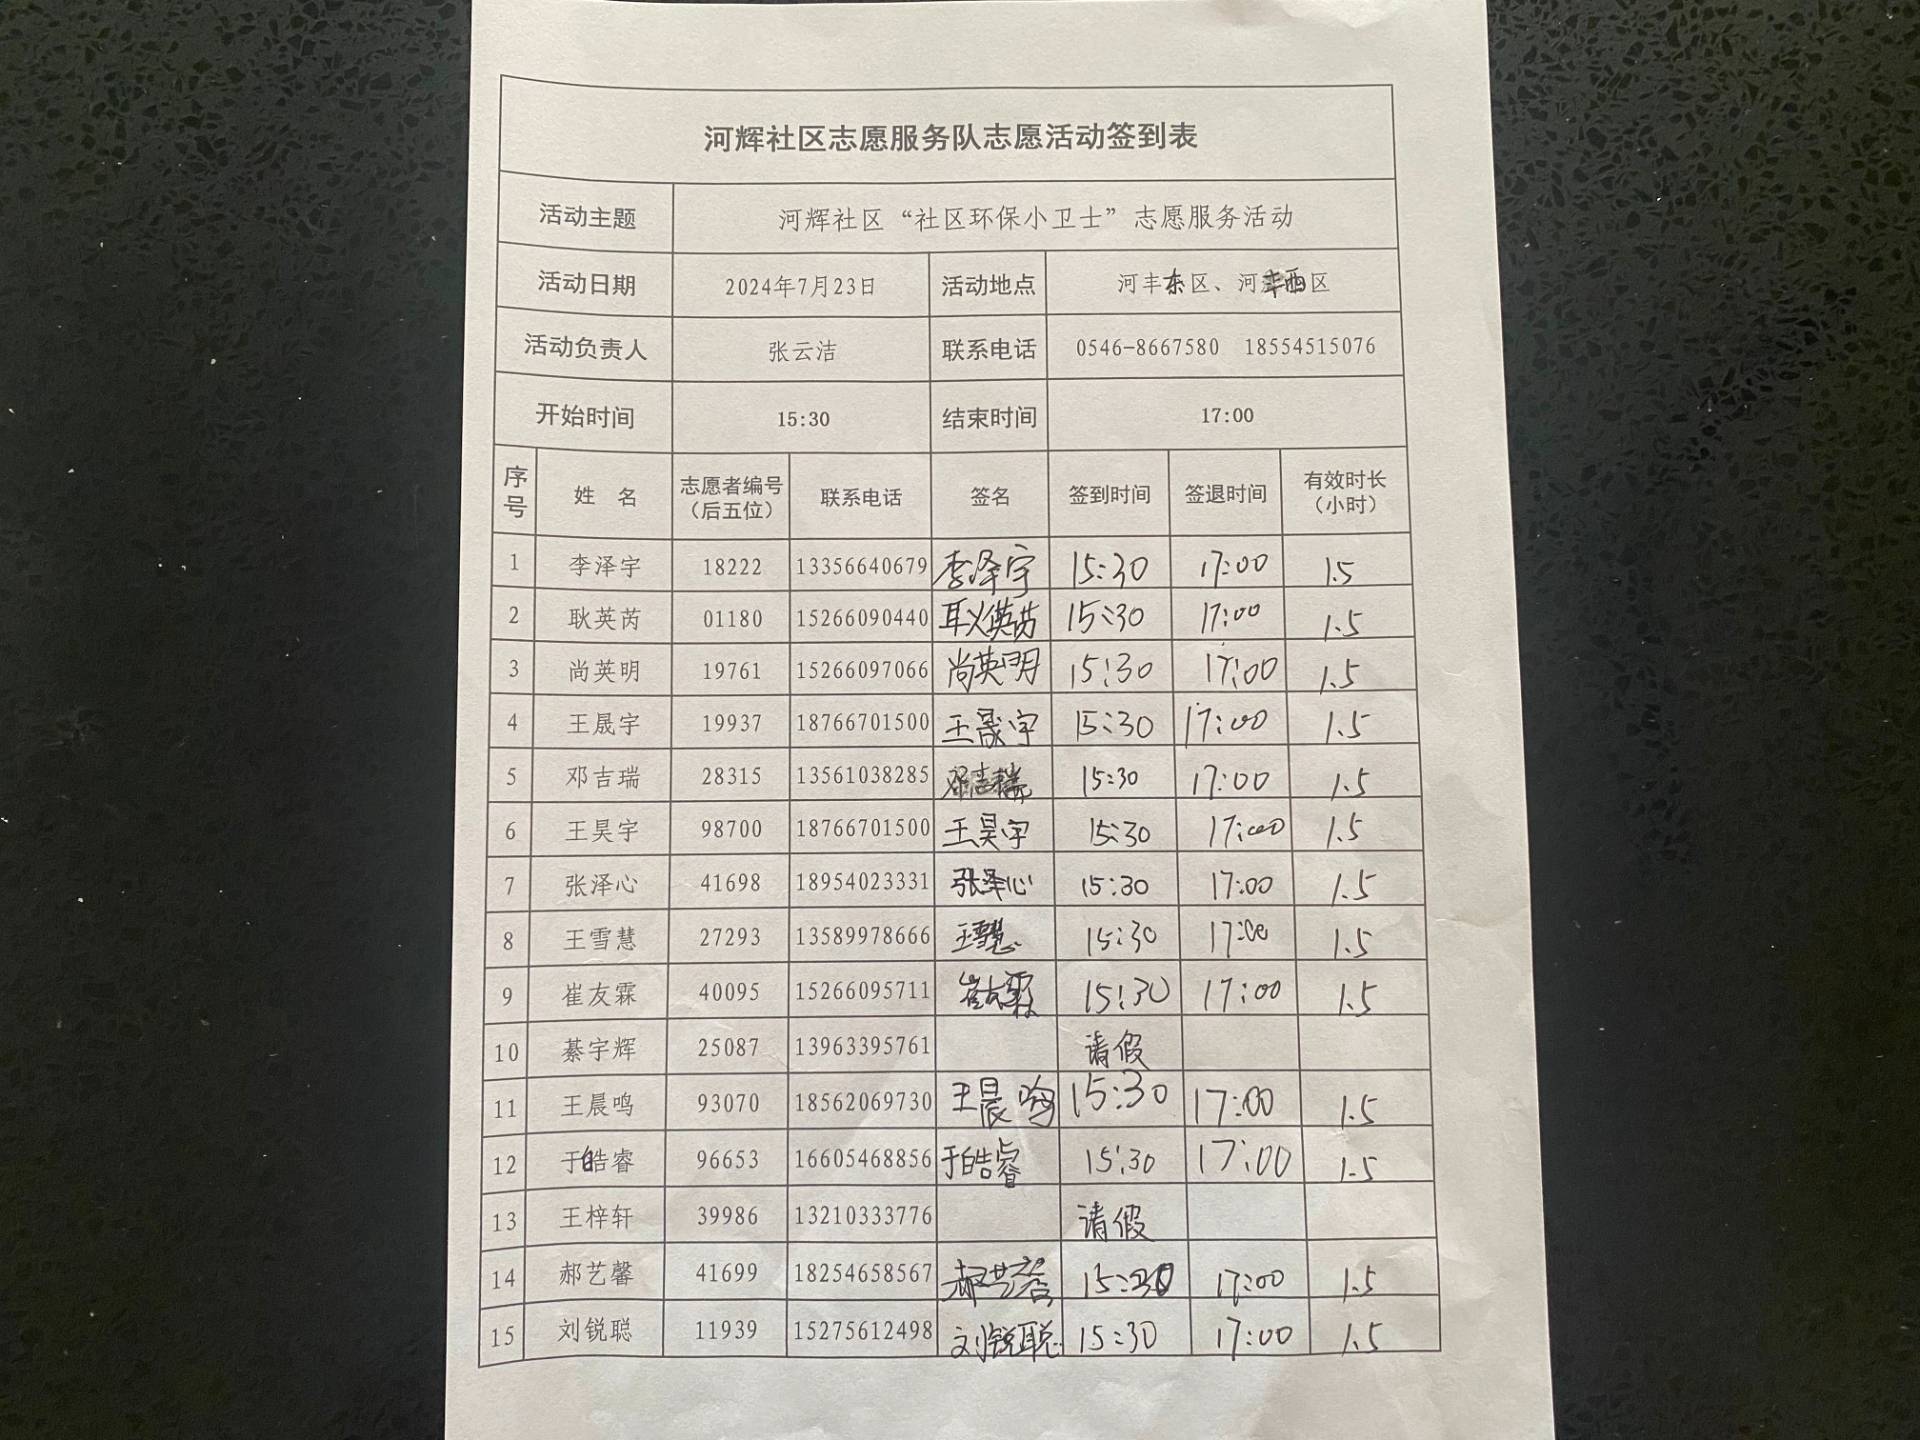 河辉社区志愿服务队志愿活动签到表
活动主题 河辉社区“社区环保小卫士”志愿服务活动
活动日期 2024年7月23日 活动地点 河丰东区、河丰西区
活动负责人 张云洁 联系电话 0546-8667580 18554515076
开始时间 15:30 结束时间 17:00
序号 姓 名 志愿者编号（后五位） 联系电话 签名 签到时间 签退时间 有效时长（小时）
1 李泽宇 18222 13356640679 李泽宇 15:30 17:00 1.5
2 耿英芮 01180 15266090440 耿英芮 15:30 17:00 1.5
3 尚英明 19761 15266097066 尚英明 15:30 17:00 1.5
4 王晟宇 19937 18766701500 王晟宇 15:30 17:00 1.5
5 邓吉瑞 28315 13561038285 邓吉瑞 15:30 17:00 1.5
6 王昊宇 98700 18766701500 王昊宇 15:30 17:00 1.5
7 张泽心 41698 18954023331 张泽心 15:30 17:00 1.5
8 王雪慧 27293 13589978666 王雪慧 15:30 17:00 1.5
9 崔友霖 40095 15266095711 崔友霖 15:30 17:00 1.5
10 綦宇辉 25087 13963395761 请假
11 王晨鸣 93070 18562069730 王晨鸣 15:30 17:00 1.5
12 于皓睿 96653 16605468856 于皓睿 15:30 17:00 1.5
13 王梓轩 39986 13210333776 请假
14 郝艺馨 41699 18254658567 郝艺馨 15:30 17:00 1.5
15 刘锐聪 11939 15275612498 刘锐聪 15:30 17:00 1.5